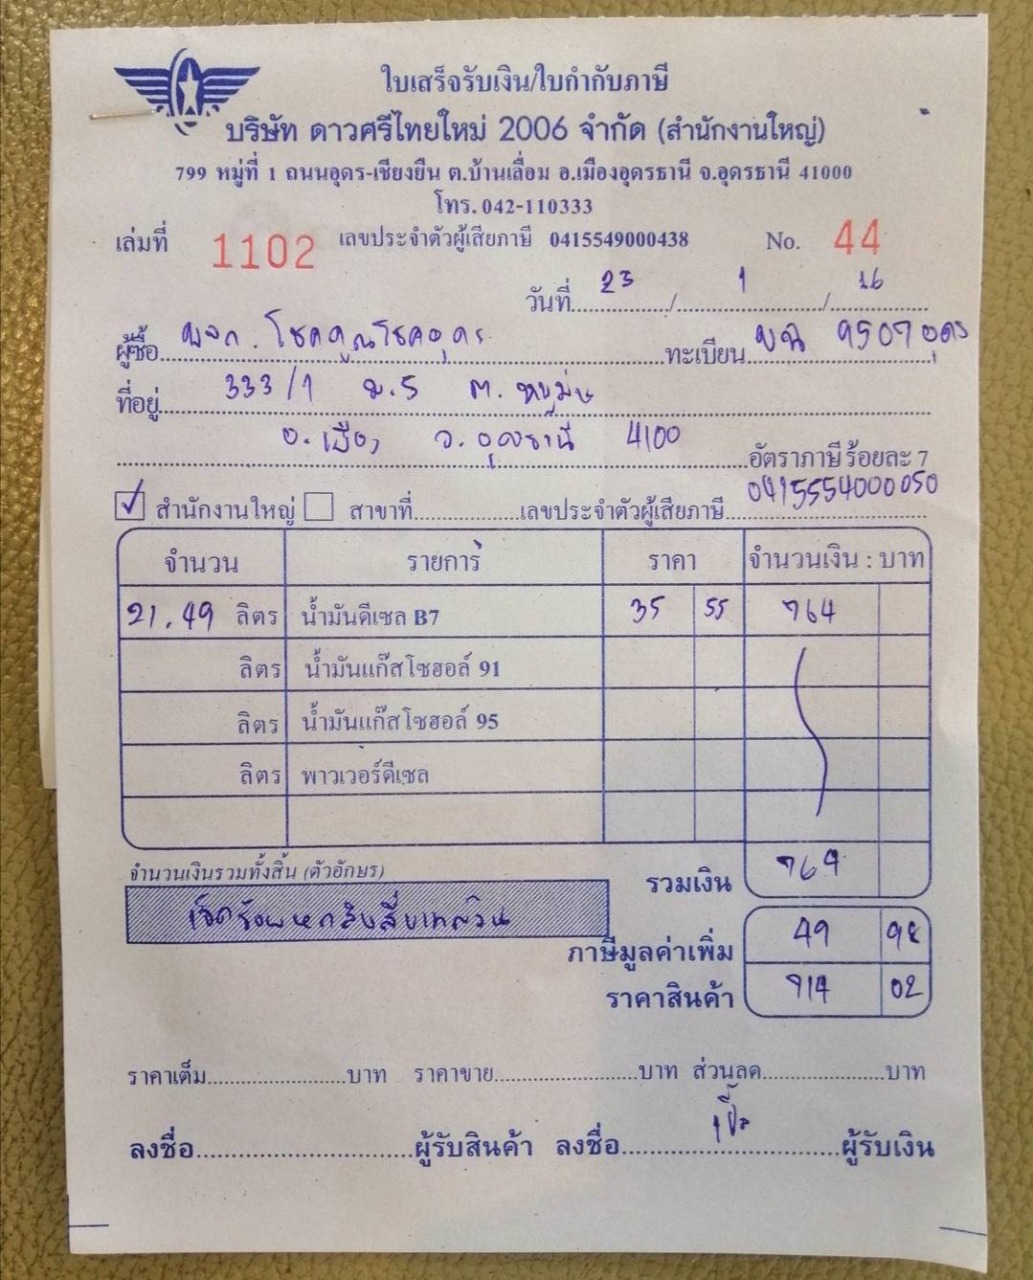 ใบเสร็จรับเงิน/ใบกำกับภาษี
บริษัท ดาวศรีไทยใหม่ 2006 จำกัด (สำนักงานใหญ่)
799 หมู่ที่ 1 ถนนอุดร-เชียงยืน ต.บ้านเลื่อม อ.เมืองอุดรธานี จ.อุดรธานี 41000
โทร. 042-110333
เล่มที่ 1102 เลขประจำตัวผู้เสียภาษี 0415549000438 No. 44
วันที่ 23 / 1 / 26
ผู้ซื้อ หจก. โชคคูณโชคอุดร ทะเบียน 9507 อุดร
ที่อยู่ 333/1 ม.5 ต.
อ.เมือง จ.อุดรธานี 4100 อัตราภาษีร้อยละ 7
สำนักงานใหญ่ สาขาที่ เลขประจำตัวผู้เสียภาษี 0415554000050
จำนวน รายการ ราคา จำนวนเงิน : บาท
21.49 ลิตร น้ำมันดีเซล B7 35 55 764
ลิตร น้ำมันแก๊สโซฮอล์ 91
ลิตร น้ำมันแก๊สโซฮอล์ 95
ลิตร พาวเวอร์ดีเซล
จำนวนเงินรวมทั้งสิ้น (ตัวอักษร) รวมเงิน 764
เจ็ดร้อยหกสิบสี่บาทถ้วน
ภาษีมูลค่าเพิ่ม 49 98
ราคาสินค้า 714 02
ราคาเต็ม บาท ราคาขาย บาท ส่วนลด บาท
ลงชื่อ ผู้รับสินค้า ลงชื่อ ผู้รับเงิน